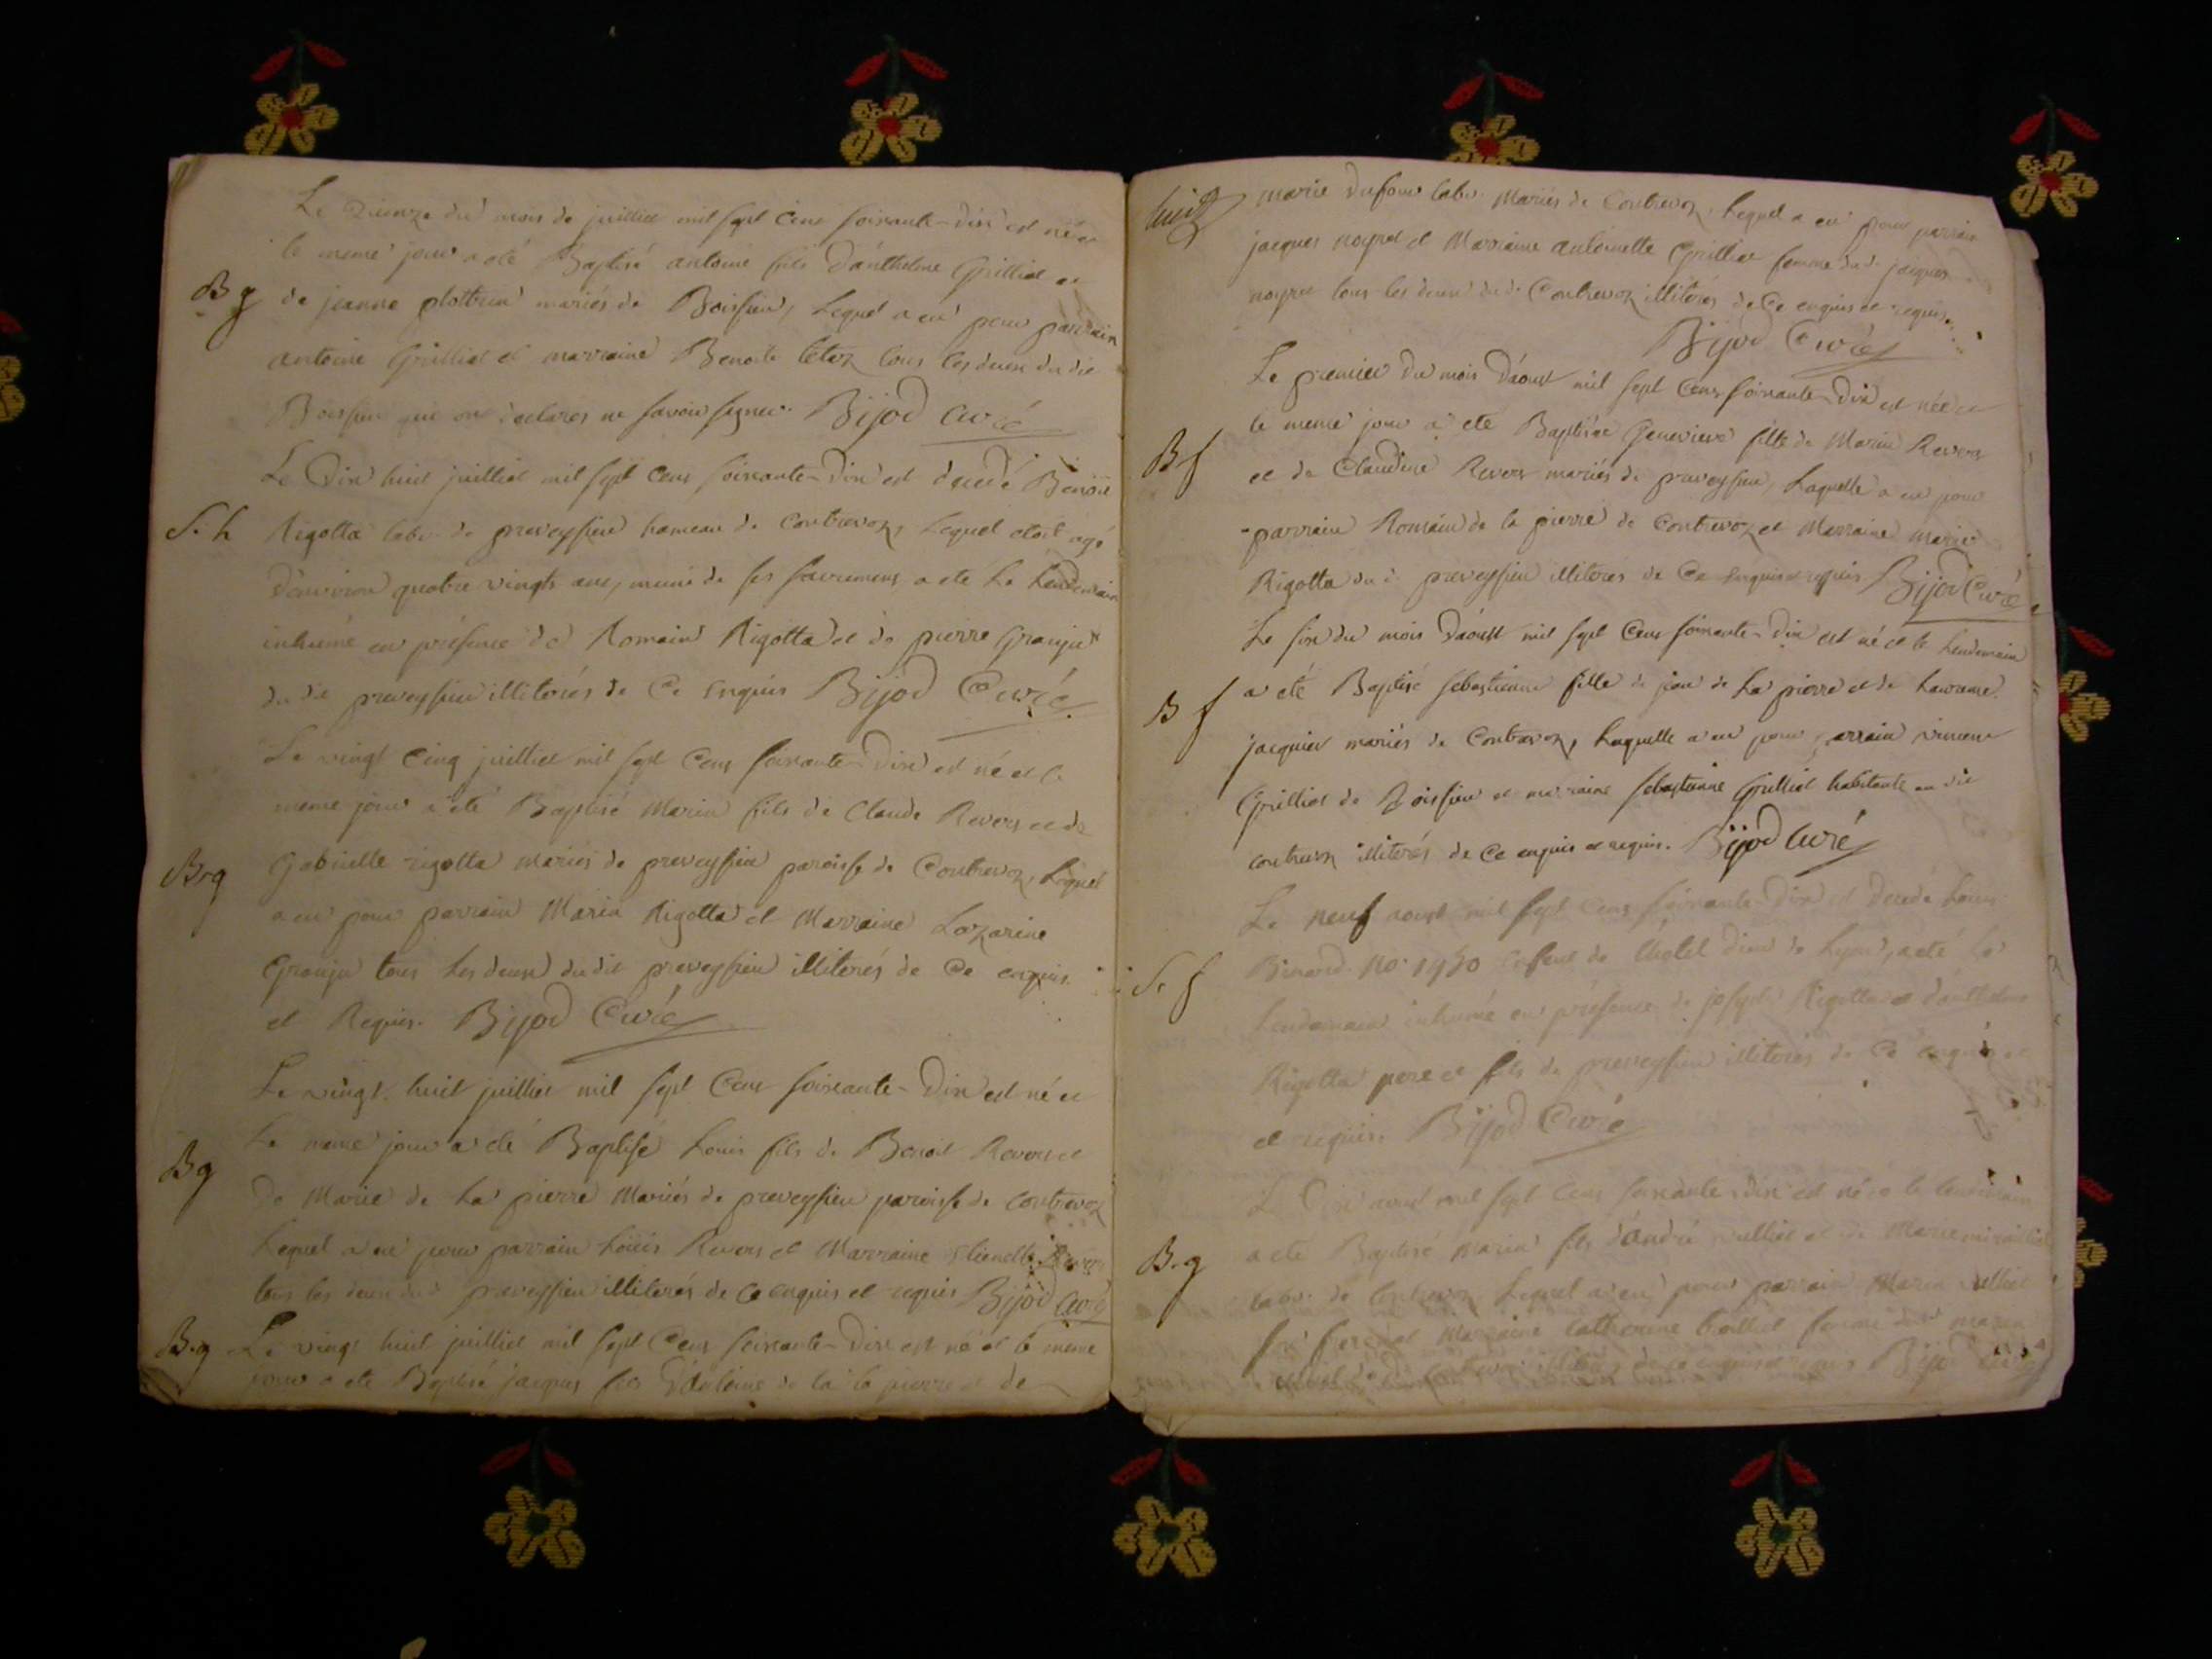 Le quinze du mois de juilliet mil sept cens soixante-dix est né et
le meme jour a eté Baptisé antoine fils d'anthelme Grilliet et
B g de jeanne plottier mariés de Boissieu, Lequel a eu pour parrain
antoine Grilliet et marraine Benoite tous les deux du dit
Boissieu qui ont declarés ne savoir signer. Bijod curé
Le Dix huit juilliet mil sept cens soixante-dix est decedé Benoit
S. h Rigotta labr. de preveyssieu hameau de Contrevoz, Lequel etoit agé
d'environ quatre vingts ans, muni de ses sacremens, a eté Le Lendemain
inhumé en présence de Romain Rigotta et de pierre Granju
du dit preveyssieu illiterés de Ce enquis Bijod Curé
Le vingt cinq juilliet mil sept Cens soixante-Dix est né et le
meme jour a eté Baptisé Marin fils de Claude Revers et de
B.g Gabrielle rigotta Mariés de preveyssieu paroisse de Contrevoz, Lequel
a eu pour parrain Marin Rigotta et Marraine Lazarine
Granju tous Les deux du dit preveyssieu illiterés de Ce enquis
et Requis. Bijod Curé
Le vingt huit juilliet mil sept Cens soixante-Dix est né et
B g Le meme jour a eté Baptisé Louis fils de Benoit Revers et
De Marie de La pierre Mariés de preveyssieu paroisse de Contrevoz
Lequel a eu pour parrain Loüis Revers et Marraine Etienette Revers
tous les deux du d. preveyssieu illiterés de Ce enquis et requis Bijod Curé
B.g Le vingt huit juilliet mil sept Cens soixante-Dix est né et le meme
jour a eté Baptisé jacques fils d'Antoine de la pierre et de
marie dufour labr. Mariés de Contrevoz, Lequel a eu pour parrain
jacques noyret et Marraine antoinette Grilliet femme du d. jacques
noyret tous les deux du d. Contrevoz illiterés de Ce enquis et requis.
Bijod Curé
Le premier du mois d'aoust mil sept Cens soixante-Dix est née et
le meme jour a eté Baptisée Genevieve fille de Marin Revers
B f et de Claudine Revers mariés de preveyssieu, Laquelle a eu pour
parrain Romain de la pierre de Contrevoz et Marraine marie
Rigotta du d. preveyssieu illiterés de Ce enquis et requis Bijod Curé
Le six du mois d'aoust mil sept Cens soixante-Dix est né et le Lendemain
B f a eté Baptisé sebastienne fille de jean de La pierre et de Laurence
jacquier mariés de Contrevoz, Laquelle a eu pour parrain vincent
Grilliet de Boissieu et marraine sebastienne Grilliet habitante au dit
contrevoz illiterés de Ce enquis et requis. Bijod Curé
Le neuf aoust mil sept cens soixante-Dix est decedé
S. f No. 1430 enfant de l'hotel dieu de Lyon, a eté Le
Lendemain inhumé en présence de joseph Rigotta et d'anthelme
Rigotta pere et fils de preveyssieu illiterés de Ce enquis
et requis. Bijod Curé
Le Dix aoust mil sept Cens soixante-dix est né et le lendemain
B.g a eté Baptisé Marin fils d'andré et de Marie
labr. de Contrevoz Lequel a eu pour parrain Marin
son frere et Marraine Catherine femme du d. marin
illiterés de Ce enquis et requis Bijod curé